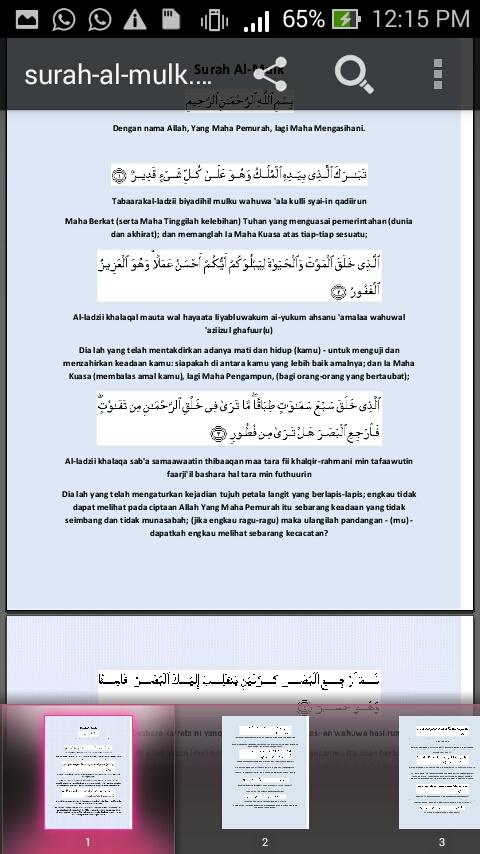 65% 12:15 PM
surah-al-mulk....
Surah Al-Mulk
بِسْمِ ٱللَّهِ ٱلرَّحْمَـٰنِ ٱلرَّحِيمِ
Dengan nama Allah, Yang Maha Pemurah, lagi Maha Mengasihani.
تَبَـٰرَكَ ٱلَّذِى بِيَدِهِ ٱلْمُلْكُ وَهُوَ عَلَىٰ كُلِّ شَىْءٍ قَدِيرٌ ١
Tabaarakal-ladzii biyadihil mulku wahuwa 'ala kulli syai-in qadiirun
Maha Berkat (serta Maha Tinggilah kelebihan) Tuhan yang menguasai pemerintahan (dunia
dan akhirat); dan memanglah Ia Maha Kuasa atas tiap-tiap sesuatu;
ٱلَّذِى خَلَقَ ٱلْمَوْتَ وَٱلْحَيَوٰةَ لِيَبْلُوَكُمْ أَيُّكُمْ أَحْسَنُ عَمَلًا ۚ وَهُوَ ٱلْعَزِيزُ
ٱلْغَفُورُ ٢
Al-ladzii khalaqal mauta wal hayaata liyabluwakum ai-yukum ahsanu 'amalaa wahuwal
'aziizul ghafuur(u)
Dia lah yang telah mentakdirkan adanya mati dan hidup (kamu) - untuk menguji dan
menzahirkan keadaan kamu: siapakah di antara kamu yang lebih baik amalnya; dan Ia Maha
Kuasa (membalas amal kamu), lagi Maha Pengampun, (bagi orang-orang yang bertaubat);
ٱلَّذِى خَلَقَ سَبْعَ سَمَـٰوَٰتٍ طِبَاقًا ۖ مَّا تَرَىٰ فِى خَلْقِ ٱلرَّحْمَـٰنِ مِن تَفَـٰوُتٍ ۖ
فَٱرْجِعِ ٱلْبَصَرَ هَلْ تَرَىٰ مِن فُطُورٍ ٣
Al-ladzii khalaqa sab'a samaawaatin thibaaqan maa tara fii khalqir-rahmani min tafaawutin
faarji'il bashara hal tara min futhuurin
Dia lah yang telah mengaturkan kejadian tujuh petala langit yang berlapis-lapis; engkau tidak
dapat melihat pada ciptaan Allah Yang Maha Pemurah itu sebarang keadaan yang tidak
seimbang dan tidak munasabah; (jika engkau ragu-ragu) maka ulangilah pandangan - (mu) -
dapatkah engkau melihat sebarang kecacatan?
ثُمَّ ٱرْجِعِ ٱلْبَصَرَ كَرَّتَيْنِ يَنقَلِبْ إِلَيْكَ ٱلْبَصَرُ خَاسِئًا
وَهُوَ حَسِيرٌ ٤
1 2 3